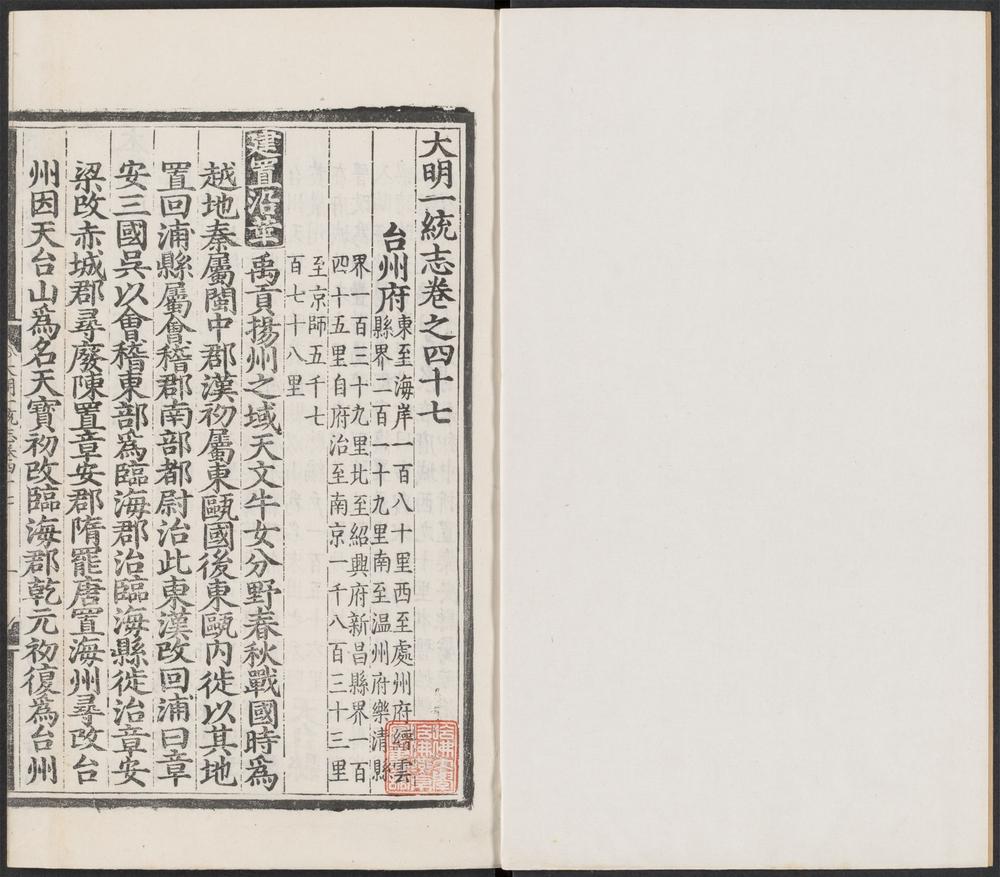 大明一統志卷之四十七
台州府
東至海岸一百八十里西至處州府縉雲
縣界二百一十九里南至温州府樂清縣
界一百三十九里北至紹興府新昌縣界一百
四十五里自府治至南京一千八百三十三里
至京師五千七
百七十八里
建置沿革
禹貢揚州之域天文牛女分野春秋戰國時爲
越地秦屬閩中郡漢初屬東甌國後東甌内徙以其地
置回浦縣屬會稽郡南部都尉治此東漢改回浦曰章
安三國吳以會稽東部爲臨海郡治臨海縣徙治章安
梁改赤城郡尋廢陳置章安郡隋罷唐置海州尋改台
州因天台山爲名天寶初改臨海郡乾元初復爲台州